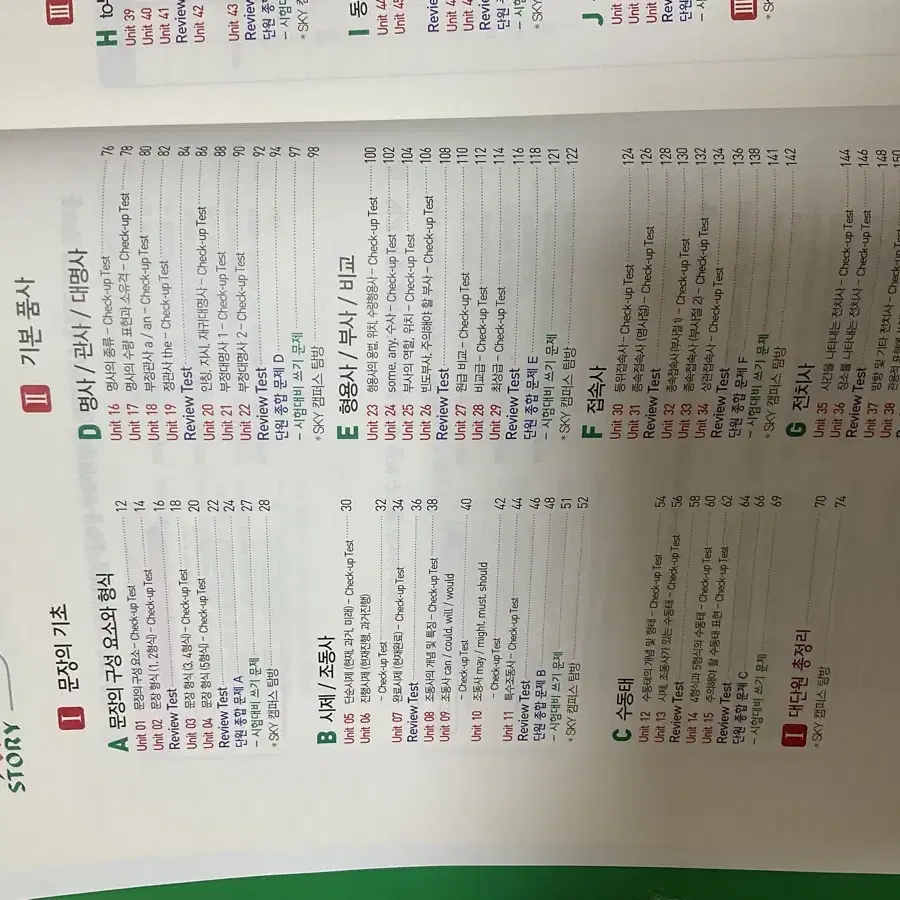 STORY
I 문장의 기초
A 문장의 구성 요소와 형식
Unit 01 문장의 구성 요소 – Check-up Test 12
Unit 02 문장 형식 (1, 2형식) – Check-up Test 14
Review Test 16
Unit 03 문장 형식 (3, 4형식) – Check-up Test 18
Unit 04 문장 형식 (5형식) – Check-up Test 20
Review Test 22
단원 종합 문제 A 24
– 시험대비 쓰기 문제 27
* SKY 캠퍼스 탐방 28
B 시제 / 조동사
Unit 05 단순시제 (현재, 과거, 미래) – Check-up Test 30
Unit 06 진행시제 (현재진행, 과거진행)
– Check-up Test 32
Unit 07 완료시제 (현재완료) – Check-up Test 34
Review Test 36
Unit 08 조동사의 개념 및 특징 – Check-up Test 38
Unit 09 조동사 can / could, will / would
– Check-up Test 40
Unit 10 조동사 may / might, must, should
– Check-up Test 42
Unit 11 특수조동사 – Check-up Test 44
Review Test 46
단원 종합 문제 B 48
– 시험대비 쓰기 문제 51
* SKY 캠퍼스 탐방 52
C 수동태
Unit 12 수동태의 개념 및 형태 – Check-up Test 54
Unit 13 시제, 조동사가 있는 수동태 – Check-up Test 56
Review Test 58
Unit 14 4형식과 5형식의 수동태 – Check-up Test 60
Unit 15 주의해야 할 수동태 표현 – Check-up Test 62
Review Test 64
단원 종합 문제 C 66
– 시험대비 쓰기 문제 69
I 대단원 총정리 70
* SKY 캠퍼스 탐방 74
II 기본 품사
D 명사 / 관사 / 대명사
Unit 16 명사의 종류 – Check-up Test 76
Unit 17 명사의 수량 표현과 소유격 – Check-up Test 78
Unit 18 부정관사 a / an – Check-up Test 80
Unit 19 정관사 the – Check-up Test 82
Review Test 84
Unit 20 인칭, 지시, 재귀대명사 – Check-up Test 86
Unit 21 부정대명사 1 – Check-up Test 88
Unit 22 부정대명사 2 – Check-up Test 90
Review Test 92
단원 종합 문제 D 94
– 시험대비 쓰기 문제 97
* SKY 캠퍼스 탐방 98
E 형용사 / 부사 / 비교
Unit 23 형용사의 용법, 위치, 수량형용사 – Check-up Test 100
Unit 24 some, any, 수사 – Check-up Test 102
Unit 25 부사의 역할, 위치 – Check-up Test 104
Unit 26 빈도부사, 주의해야 할 부사 – Check-up Test 106
Review Test 108
Unit 27 원급 비교 – Check-up Test 110
Unit 28 비교급 – Check-up Test 112
Unit 29 최상급 – Check-up Test 114
Review Test 116
단원 종합 문제 E 118
– 시험대비 쓰기 문제 121
* SKY 캠퍼스 탐방 122
F 접속사
Unit 30 등위접속사 – Check-up Test 124
Unit 31 종속접속사 (명사절) – Check-up Test 126
Review Test 128
Unit 32 종속접속사 (부사절 1) – Check-up Test 130
Unit 33 종속접속사 (부사절 2) – Check-up Test 132
Unit 34 상관접속사 – Check-up Test 134
Review Test 136
단원 종합 문제 F 138
– 시험대비 쓰기 문제 141
* SKY 캠퍼스 탐방 142
G 전치사
Unit 35 시간을 나타내는 전치사 – Check-up Test 144
Unit 36 장소를 나타내는 전치사 – Check-up Test 146
Review Test 148
Unit 37 방향 및 기타 전치사 – Check-up Test 150
Unit 38 관용적
III
H
Unit 39
Unit 40
Unit 41
Review
Unit 42
Unit 43
Review
단원
– 시험대
* SKY 캠
I 동
J
III